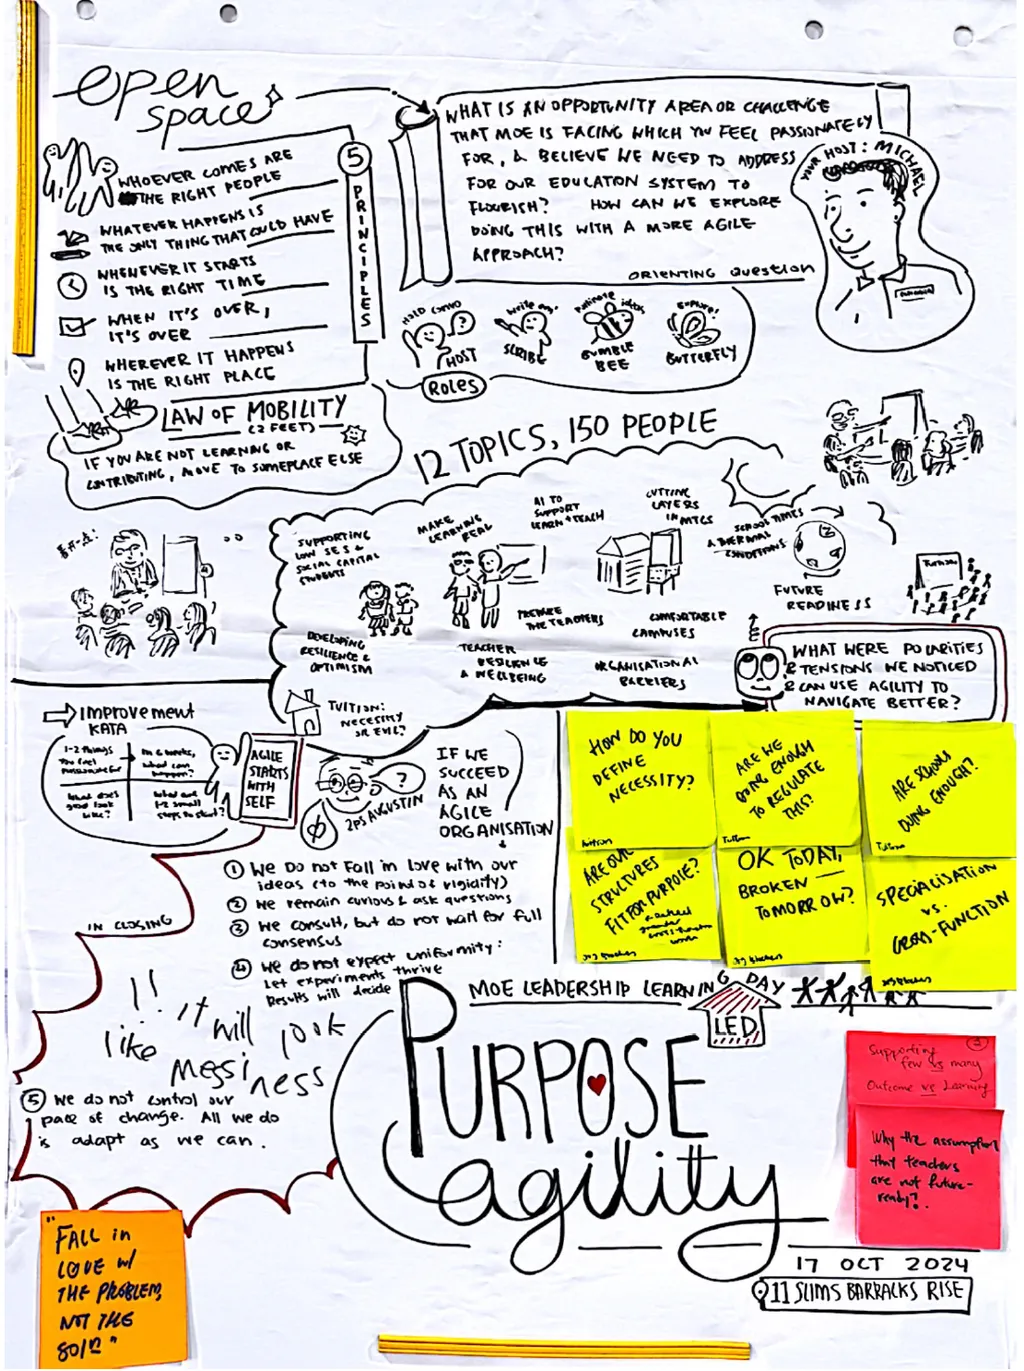 open
space
5
PRINCIPLES
WHOEVER COMES ARE
THE RIGHT PEOPLE
WHATEVER HAPPENS IS
THE ONLY THING THAT COULD HAVE
WHENEVER IT STARTS
IS THE RIGHT TIME
WHEN IT'S OVER,
IT'S OVER
WHEREVER IT HAPPENS
IS THE RIGHT PLACE
LAW OF MOBILITY
(2 FEET)
IF YOU ARE NOT LEARNING OR
CONTRIBUTING, MOVE TO SOMEPLACE ELSE
WHAT IS AN OPPORTUNITY AREA OR CHALLENGE
THAT MOE IS FACING WHICH YOU FEEL PASSIONATELY
FOR, & BELIEVE WE NEED TO ADDRESS
FOR OUR EDUCATION SYSTEM TO
FLOURISH? HOW CAN WE EXPLORE
DOING THIS WITH A MORE AGILE
APPROACH?
ORIENTING QUESTION
YOUR HOST: MICHAEL
HOLD
HOST
SCRIBE
Pollinate ideas
BUMBLE
BEE
EXPLORE!
BUTTERFLY
ROLES
12 TOPICS, 150 PEOPLE
SUPPORTING
LOW SES &
SOCIAL CAPITAL
STUDENTS
MAKE
LEARNING
REAL
AI TO
SUPPORT
LEARN + TEACH
CUTTING
LAYERS
IN MTGS
SCHOOL TIMES
& THERMAL
CONDITIONS
FUTURE
READINESS
DEVELOPING
RESILIENCE &
OPTIMISM
TEACHER
RESILIENCE
& WELLBEING
PREPARE
THE TEACHERS
COMFORTABLE
CAMPUSES
ORGANISATIONAL
BARRIERS
TUITION:
NECESSITY
OR EVIL?
WHAT WERE POLARITIES
& TENSIONS WE NOTICED
& CAN USE AGILITY TO
NAVIGATE BETTER?
Improvement
KATA
1-2 things
you feel
passionate for
In 6 weeks,
what can
happen?
What does
good look
like?
What are
1-2 small
steps to start?
AGILE
STARTS
WITH
SELF
?
2PS AUGUSTIN
IF WE
SUCCEED
AS AN
AGILE
ORGANISATION
1 We Do not Fall in love with our
ideas (to the point of rigidity)
2 We remain curious & ask questions
3 We consult, but do not wait for full
consensus
4 We do not expect uniformity:
Let experiments thrive
Results will decide
IN CLOSING
!! It will look
like messiness
5 We do not control our
pace of change. All we do
is adapt as we can.
HOW DO YOU
DEFINE
NECESSITY?
ARE WE
DOING ENOUGH
TO REGULATE
THIS?
ARE SCHOOLS
DOING ENOUGH?
ARE OUR
STRUCTURES
FIT FOR PURPOSE?
OK TODAY,
BROKEN
TOMORROW?
SPECIALISATION
vs.
CROSS-FUNCTION
MOE LEADERSHIP LEARNING DAY
LED
PURPOSE
agility
Supporting
few vs many
Outcome vs Learning
Why the assumption
that teachers
are not future-
ready?
17 OCT 2024
11 SLIMS BARRACKS RISE
"FALL in
LOVE w/
THE PROBLEM,
NOT THE